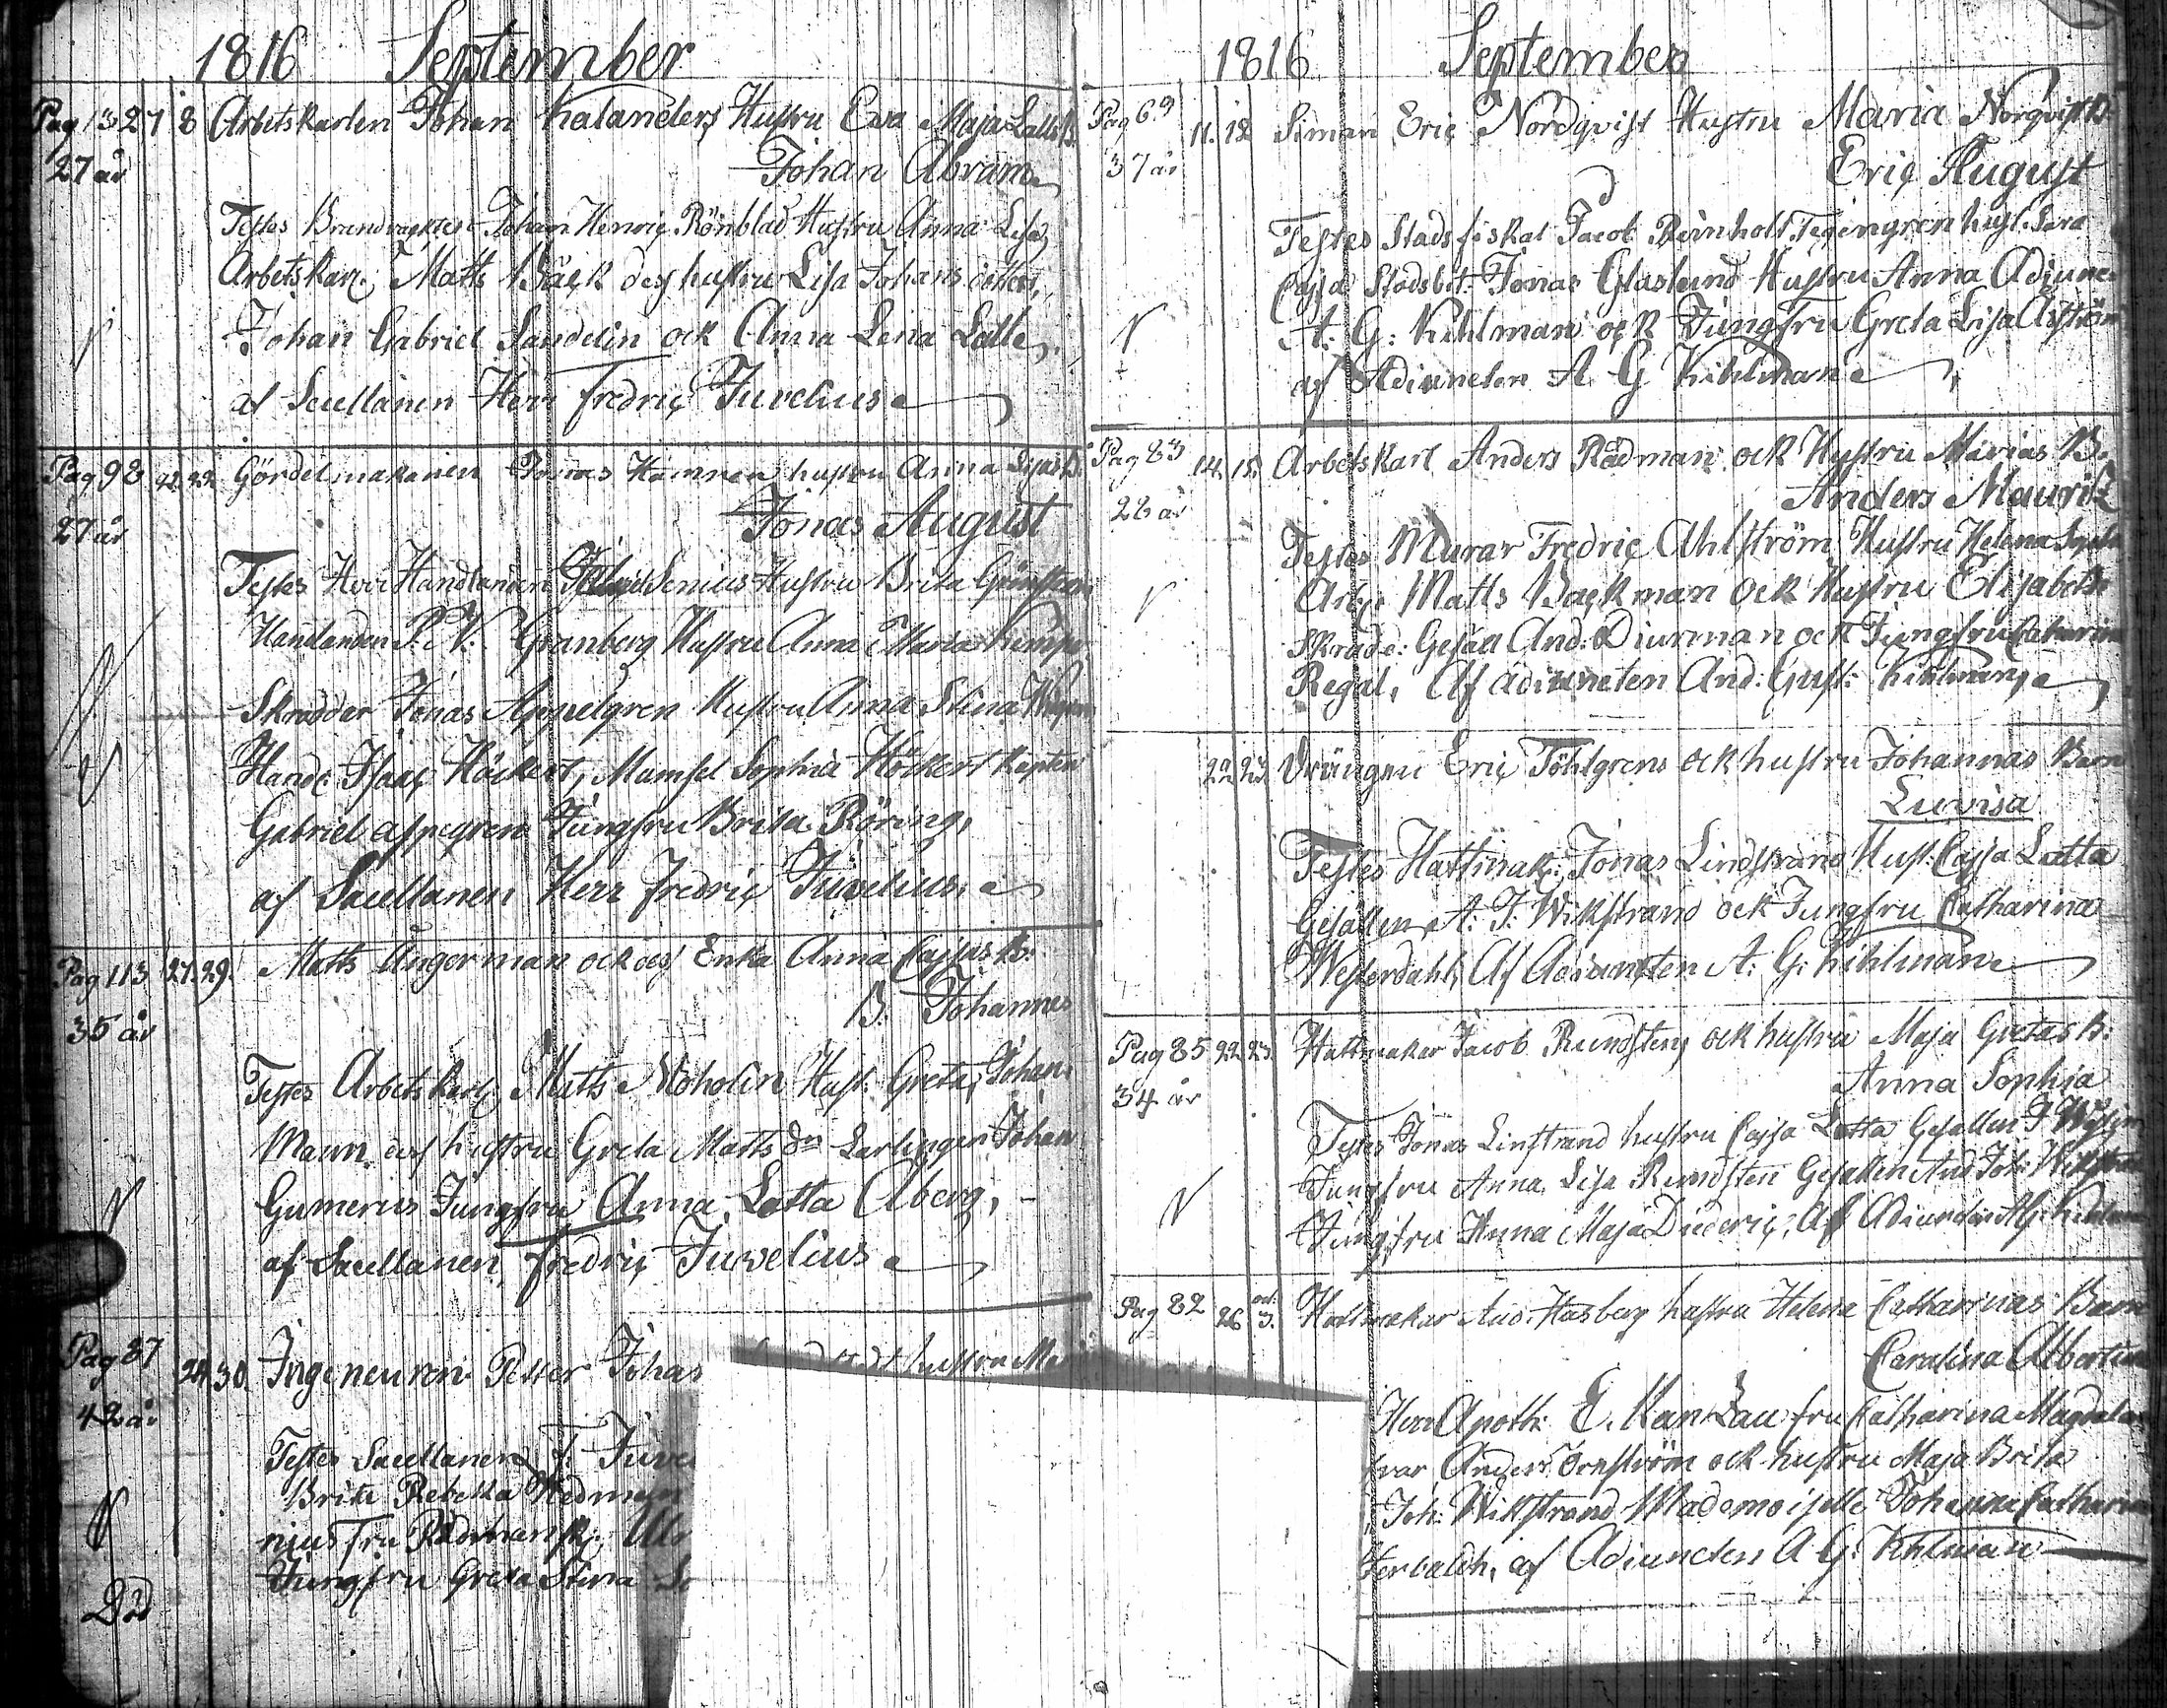 1816 September
Pag 13 27 8 Arbetskarlen Johan Kalanders Hustru Eva Maja Lallas B.
27 år Johan Abram
Testes Brandvaktm Johan Henric Rönblad Hustru Anna Lisa,
Arbetskarl. Matts Bäck des hustru Lisa Johans dotter,
Johan Gabriel Sandelin ock Anna Lena Lalle,
af Sacellanen Herr Fredric Juvelius
Pag 98 22 Gördelmakaren Jonas Hamren hustru Anna Lisas B.
27 år Jonas August
Testes Herr Handlanden Senius Hustru Brita
Handlanden P. N. Granberg Hustru Anna Maria
Skradder Jonas Appelgren Hustru Anna Stina
Handl: Isaac Höckert, Mamsel Sophia Höckert
Gabriel appegren Jungfru Brita Röring,
af Sacellanen Herr Fredric Juvelius
Pag 113 27. 29. Matts Ångerman ock des Enka Anna Cajsas B:
35 år B. Johannes
Testes Arbetskarl Matts Moholin Hust. Greta, Johan
Mann des hustru Greta Matts dr Lärlingen Johan
Gumerus Jungfru Anna Lotta Åberg,
af Sacellanen Fredric Juvelius
Pag 87 24 30. Ingeneuren Petter Johas hustru
42 år
Testes Sacellanen F. Juve
Brita Rebecka Wedman
nius fru Rådmansk.
Jungfru Greta Stina
Död
1816 September
Pag 69 11. 12 Siman Eric Nordqvist Hustru Maria Norqvist B.
37 år Eric August
Testes Stads fiskal Jacob Reinholt Tegengren hust. Sara
Cajsa Stadsbet: Jonas Glaslund Hustru Anna Adjunc
A: G: Kihlman ock Jungfru Greta Lisa Åström
af Adiuncten A G Kihlman
Pag 83 14. 15. Arbetskarl Anders Rådman ock Hustru Marias B.
22 år Anders Maurits
Testes Murar Fredric Ahlström Hustru Helena
Arb: Matts Backman ock Hustru Elisabeth
Skradd: Gesäll And: Diurman ock Jungfru Catharina
Regal, Af adiuncten And: Gust: Kihlman
22 23. Drängen Eric Töhlgrens ock hustru Johannas Barn
Luvisa
Testes Hattmak: Jonas Lindstrand Hust: Cajsa Lotta
Gesällen A: J: Wikstrand ock Jungfru Catharina
Westerdahl, Af Adiuncten A: G: Kihlman
Pag 85 22 23. Hattmakar Jacob Rundsten ock hustru Maja Gretas B:
34 år Anna Sophia
Testes Jonas Linstrand hustru Cajsa Lotta Gesällen
Jungfru Anna Lisa Rundsten Gesällen And Joh: Wikstrand
Jungfru Anna Maja Diederic, Af Adiuncten AG: Kihlman
Pag 82 26 oct: 3. Hattmakar And: Hasberg hustru Helena Catharinas Barn
Carolina Albertina
Herr Apoth: E. Mantzau fru Catharina Magdalena
Anders Örnström ock hustru Maja Brita
Joh: Wikstrand Mademoiselle Johanna Catharina
af Adiuncten A G: Kihlman